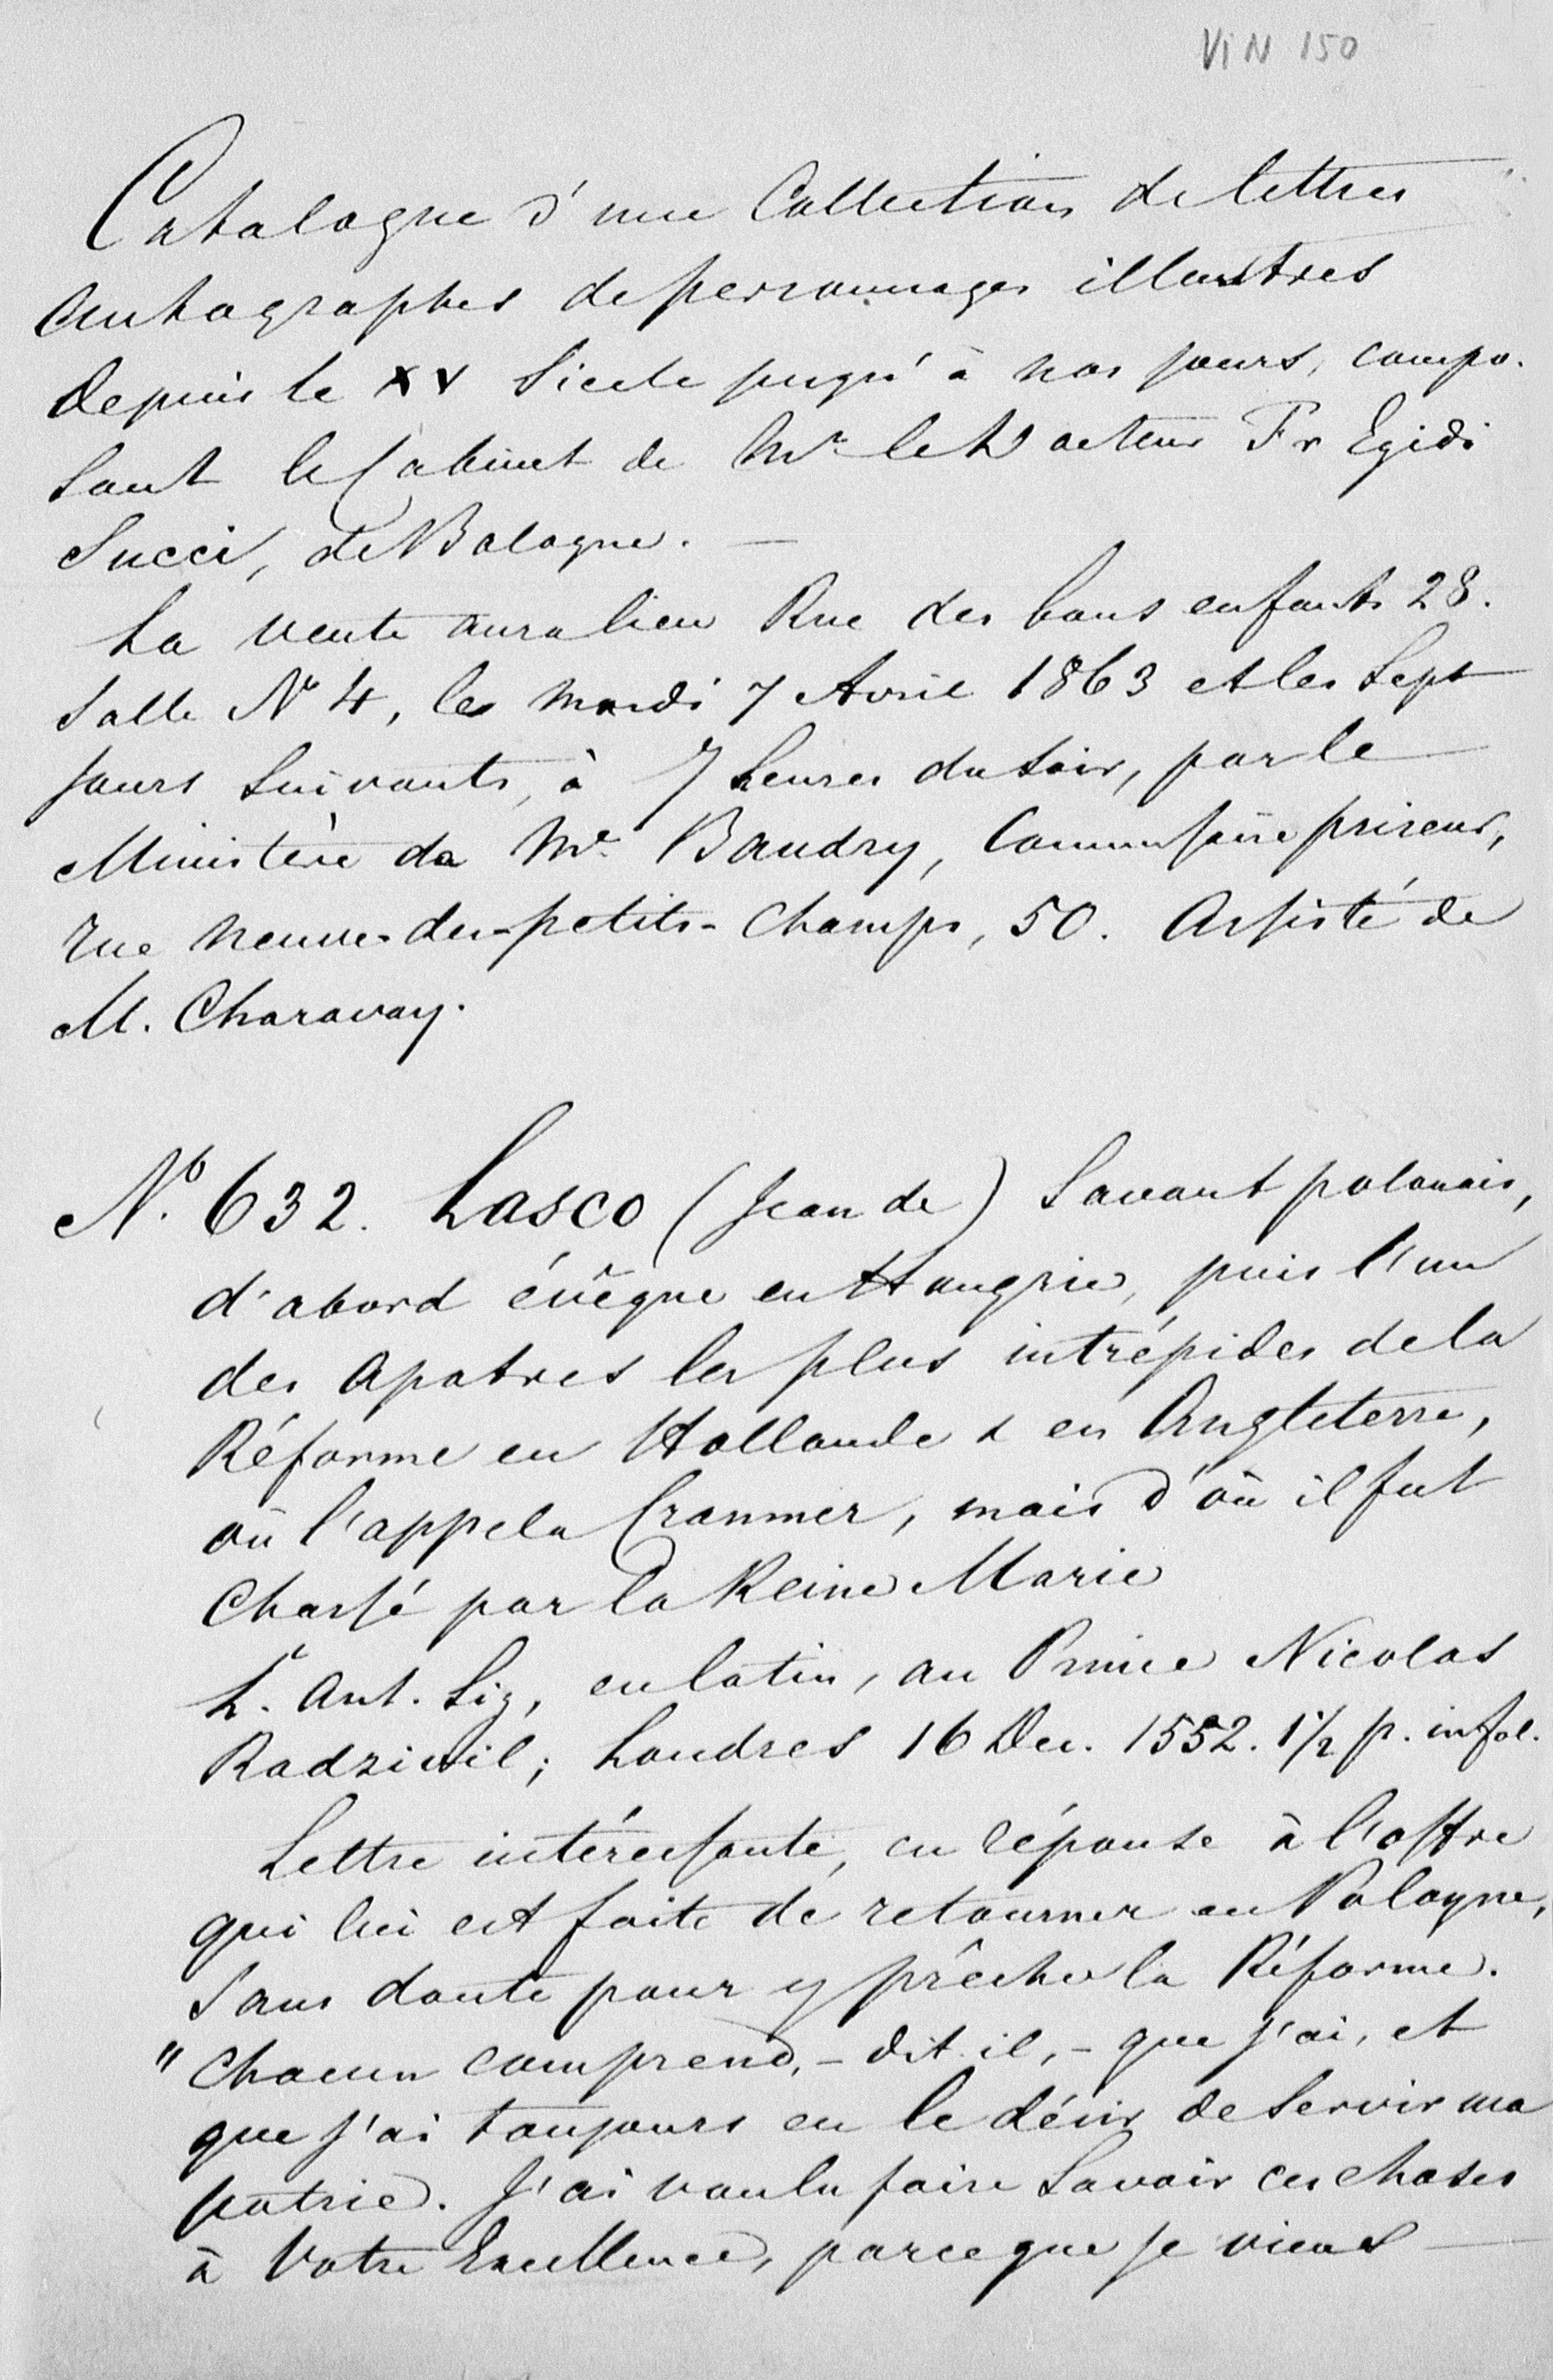 VIN 150
Catalogue d'une Collection de lettres
Autographes de personnages illustres
depuis le XV Siecle jusqu'à nos jours, compo.
Sant le Cabinet de Mr. le Docteur Fr Egidi
Succi, de Bologne. —
La vente aura lieu Rue des bons enfants 28.
Salle No 4, le mardi 7 Avril 1863 et les Sept
jours Suivants, à 7 heures du Soir, par le
Ministère de Me. Baudry, Commissaire priseur,
rue neuve-des-petits-Champs, 50. Assisté de
M. Charavay.
No. 632. Lasco (Jean de) Savant polonais,
d'abord évêque en Hongrie, puis l'un
des Apotres les plus intrépides de la
Réforme en Hollande & en Angleterre,
où l'appela Cranmer, mais d'où il fut
Chassé par la Reine Marie
L. Aut. Sig, en latin, au Prince Nicolas
Radziwil; Londres 16 Dec. 1552. 1 1/2 p. in fol.
Lettre intéressante, en réponse à l'offre
qui lui est faite de retourner en Pologne,
Sans doute pour y prêcher la Réforme.
"Chacun comprend, - dit-il, - que j'ai, et
que j'ai toujours eu le désir de Servir ma
patrie. J'ai voulu faire Savoir ces choses
à Votre Excellence, parceque je viens —